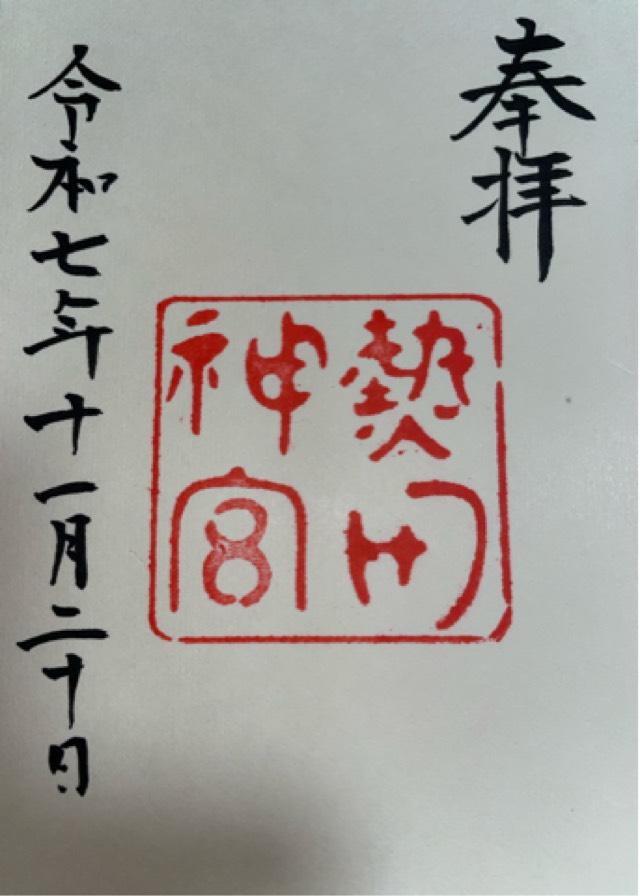 奉拝
熱田
神宮
令和七年十一月二十日